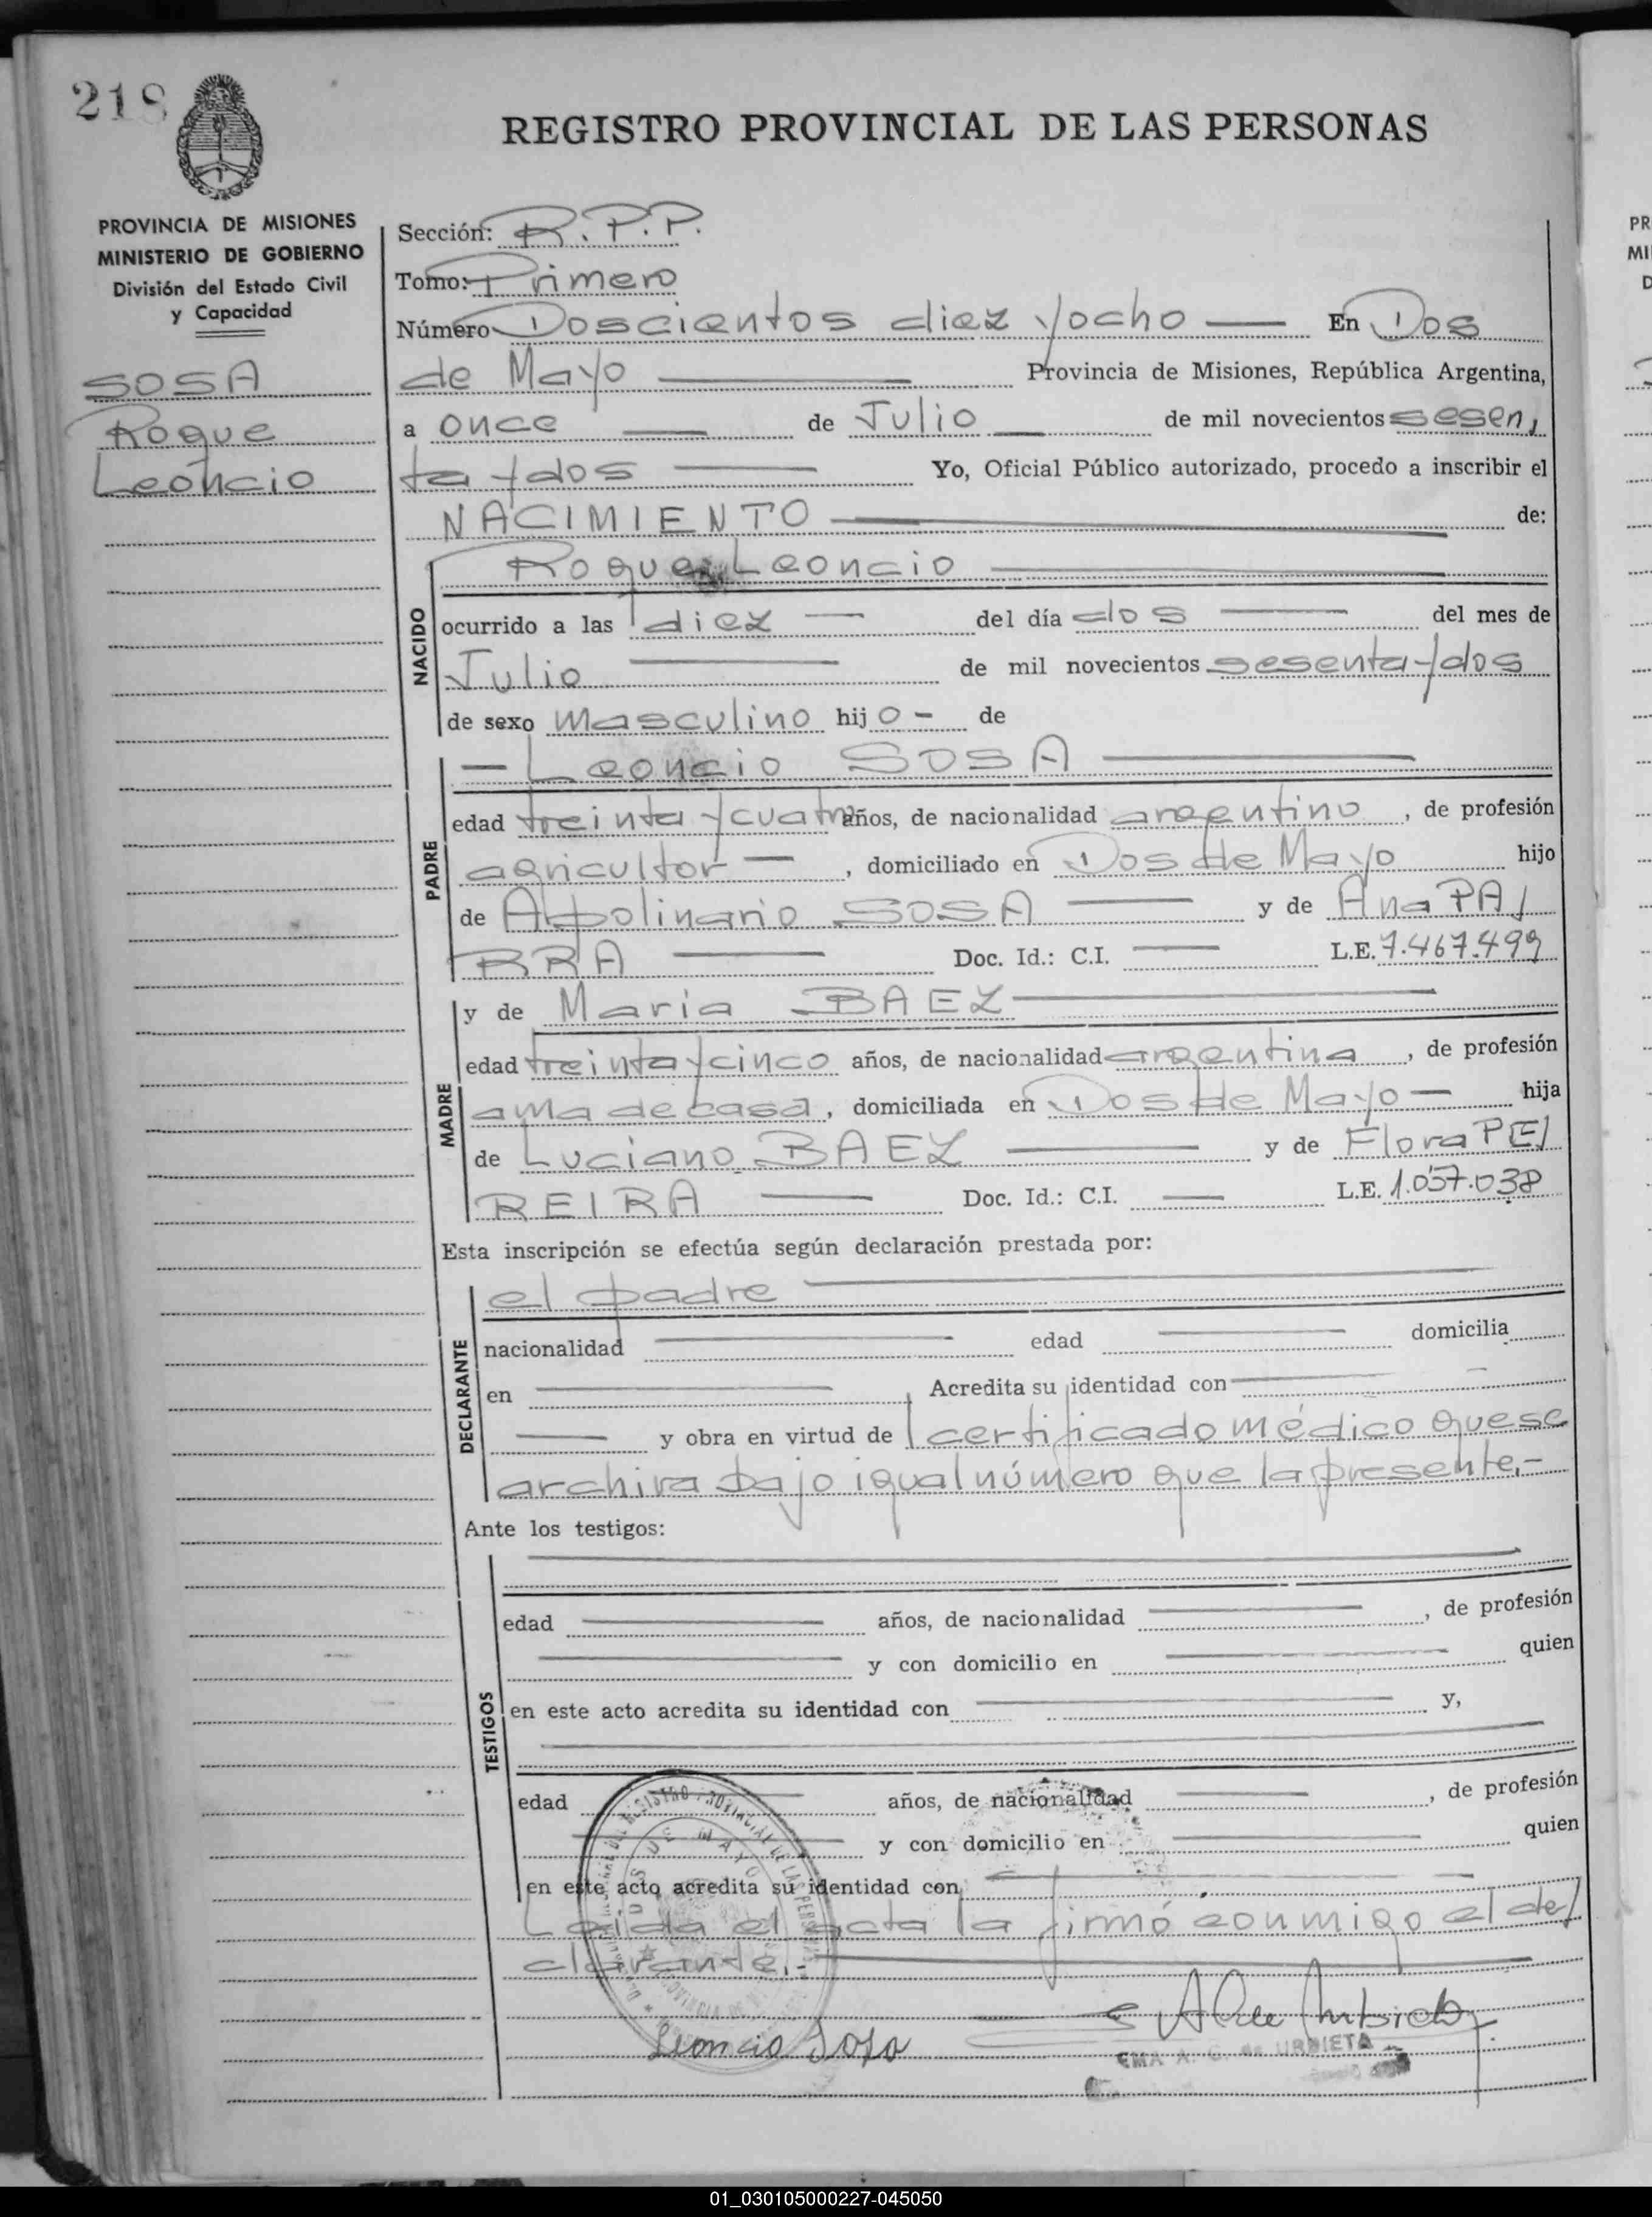 218
REGISTRO PROVINCIAL DE LAS PERSONAS
PROVINCIA DE MISIONES
MINISTERIO DE GOBIERNO
División del Estado Civil
y Capacidad
SOSA
Roque
Leoncio
Sección: R.P.P.
Tomo: Primero
Número Doscientos diez y ocho — En Dos
de Mayo — Provincia de Misiones, República Argentina,
a once — de Julio — de mil novecientos sesen,
ta y dos — Yo, Oficial Público autorizado, procedo a inscribir el
NACIMIENTO — de:
NACIDO
Roque Leoncio —
ocurrido a las diez — del día dos — del mes de
Julio — de mil novecientos sesenta y dos
de sexo masculino hijo - de
PADRE
— Leoncio SOSA —
edad treinta y cuatro años, de nacionalidad argentino, de profesión
agricultor —, domiciliado en Dos de Mayo hijo
de Apolinario SOSA — y de Ana PA/
RRA — Doc. Id.: C.I. — L.E. 7.467.499
MADRE
y de Maria BAEZ —
edad treinta y cinco años, de nacionalidad argentina, de profesión
ama de casa, domiciliada en Dos de Mayo — hija
de Luciano BAEZ — y de Flora PE/
REIRA — Doc. Id.: C.I. — L.E. 1.057.038
Esta inscripción se efectúa según declaración prestada por:
DECLARANTE
el padre —
nacionalidad — edad — domicilia
en — Acredita su identidad con —
— y obra en virtud de certificado médico que se
archiva bajo igual número que la presente.-
Ante los testigos:
TESTIGOS
edad — años, de nacionalidad —, de profesión
— y con domicilio en — quien
en este acto acredita su identidad con — y,
edad — años, de nacionalidad —, de profesión
— y con domicilio en — quien
en este acto acredita su identidad con —
Leída el acta la firmó conmigo el de/
clarante.- —
Leoncio Sosa
EMA A. G. de URBIETA
01_030105000227-045050